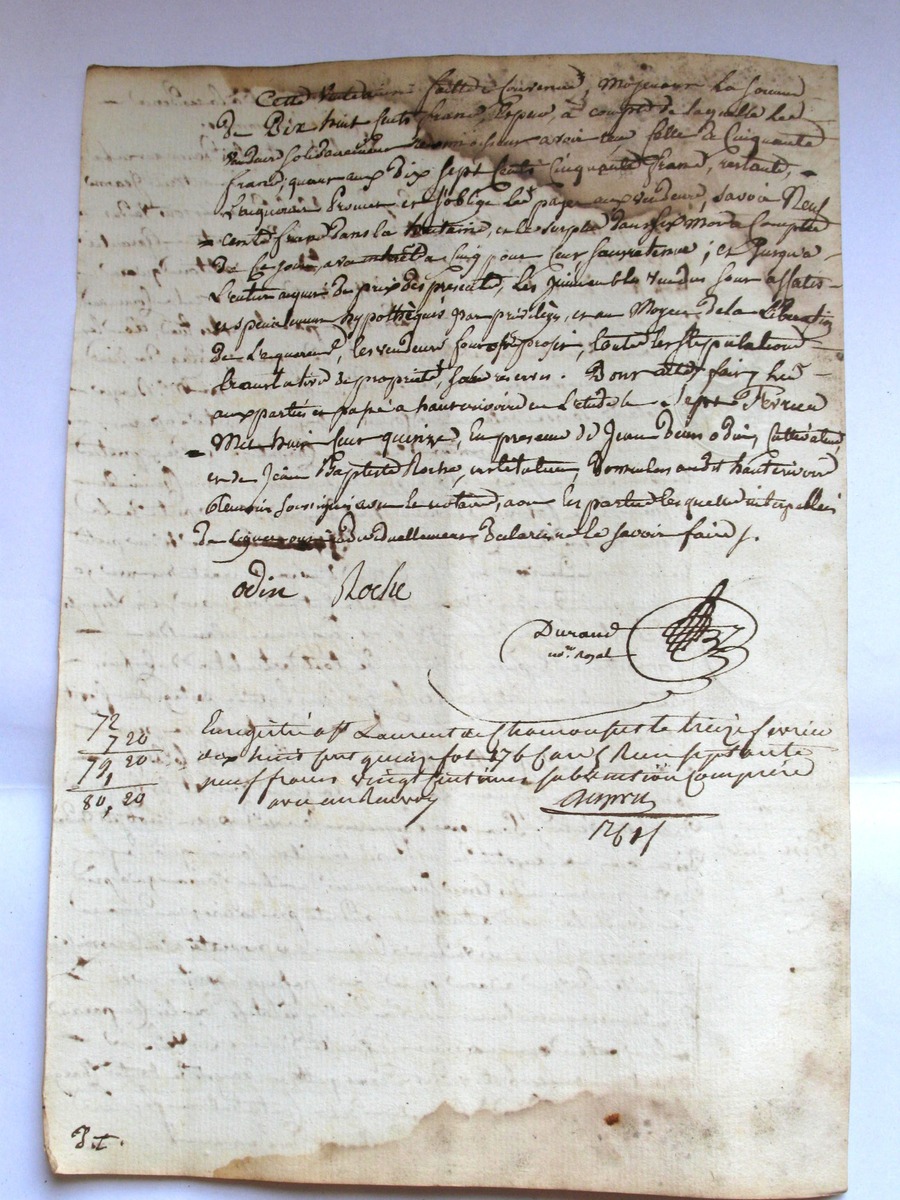 Cette vente faitte & convenue, moyenant la somme
De Dix huit cents francs, Espece, à compte de laquelle les
vendeurs solidairement reconnoissent avoir reçu celle de Cinquante
francs, quant aux Dix sept cents Cinquante francs, restants,
L'acquereur Promet et s'oblige les payer aux vendeurs, savoir Neuf
cents francs dans la huitaine, et le surplus dans six Mois a Compter
De ce jour, avec intérêt a cinq pour cent sans retenue ; et Jusqu'a
L'entier acquit Du prix des presentes, les Immeubles vendus sont affectés
et specialement hypothéqués par privilège, et au Moyen de la Liberation
de L'acquereur, les vendeurs font a son profit, toutes les stipulations
translatives de proprieté, sans reserves. Dont acte, fait, lu
aux parties et passé a hauterivoire en L'etude le sept Février
Mil huit cent quinze, En presence de Jean Denis odin, Cultivateur,
et de Jean Baptiste Roche, instituteur, Domiciliés audit hauterivoire
temoins soussignés avec le notaire, non les parties lesquelles interpellées
De signer ont individuellement Declaré ne le savoir faire /.
odin Roche
Durand
no.re Royal
72
7 20
79, 20
1
80, 20
Enregistré a St Laurent de Chamousset le treize fevrier
mil huit cent quinze fol 176 Case 5 Reçu septante
neuf francs vingt centimes subvention Comprise
avec un Renvoy